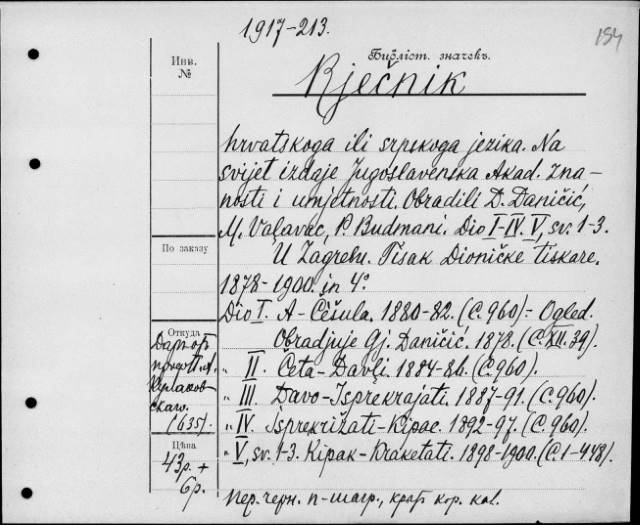 1917-213.
184
Инв. №
Библіот. значекъ.
Rječnik
hrvatskoga ili srpskoga jezika. Na
svijet izdaje Jugoslavenska Akad. zna-
nosti i umjetnosti. Obradili D. Daničić,
M. Vaļavac, P. Budmani. Dio I-IV. V, sv. 1-3.
По заказу
U Zagrebu. Tisak Dioničke tiskare.
1878-1900. in 4°.
Dio I. A - Čėšula. 1880-82. (C. 960) = Ogled.
Откуда
Obradjuje Gj. Daničić. 1878. (C. XII. 39).
Даръ отъ
" II. Četa - Davļi. 1884-86. (C. 960).
" III. Davo - Isprekrajati. 1887-91. (C. 960).
(635).
" IV. Isprekrižati - Kipac. 1892-97. (C. 960).
Цѣна
" V, sv. 1-3. Kipak - Kraketati. 1898-1900. (C. 1-448).
43р. +
6р.
пер. черн. п-шагр., краф кор. кал.